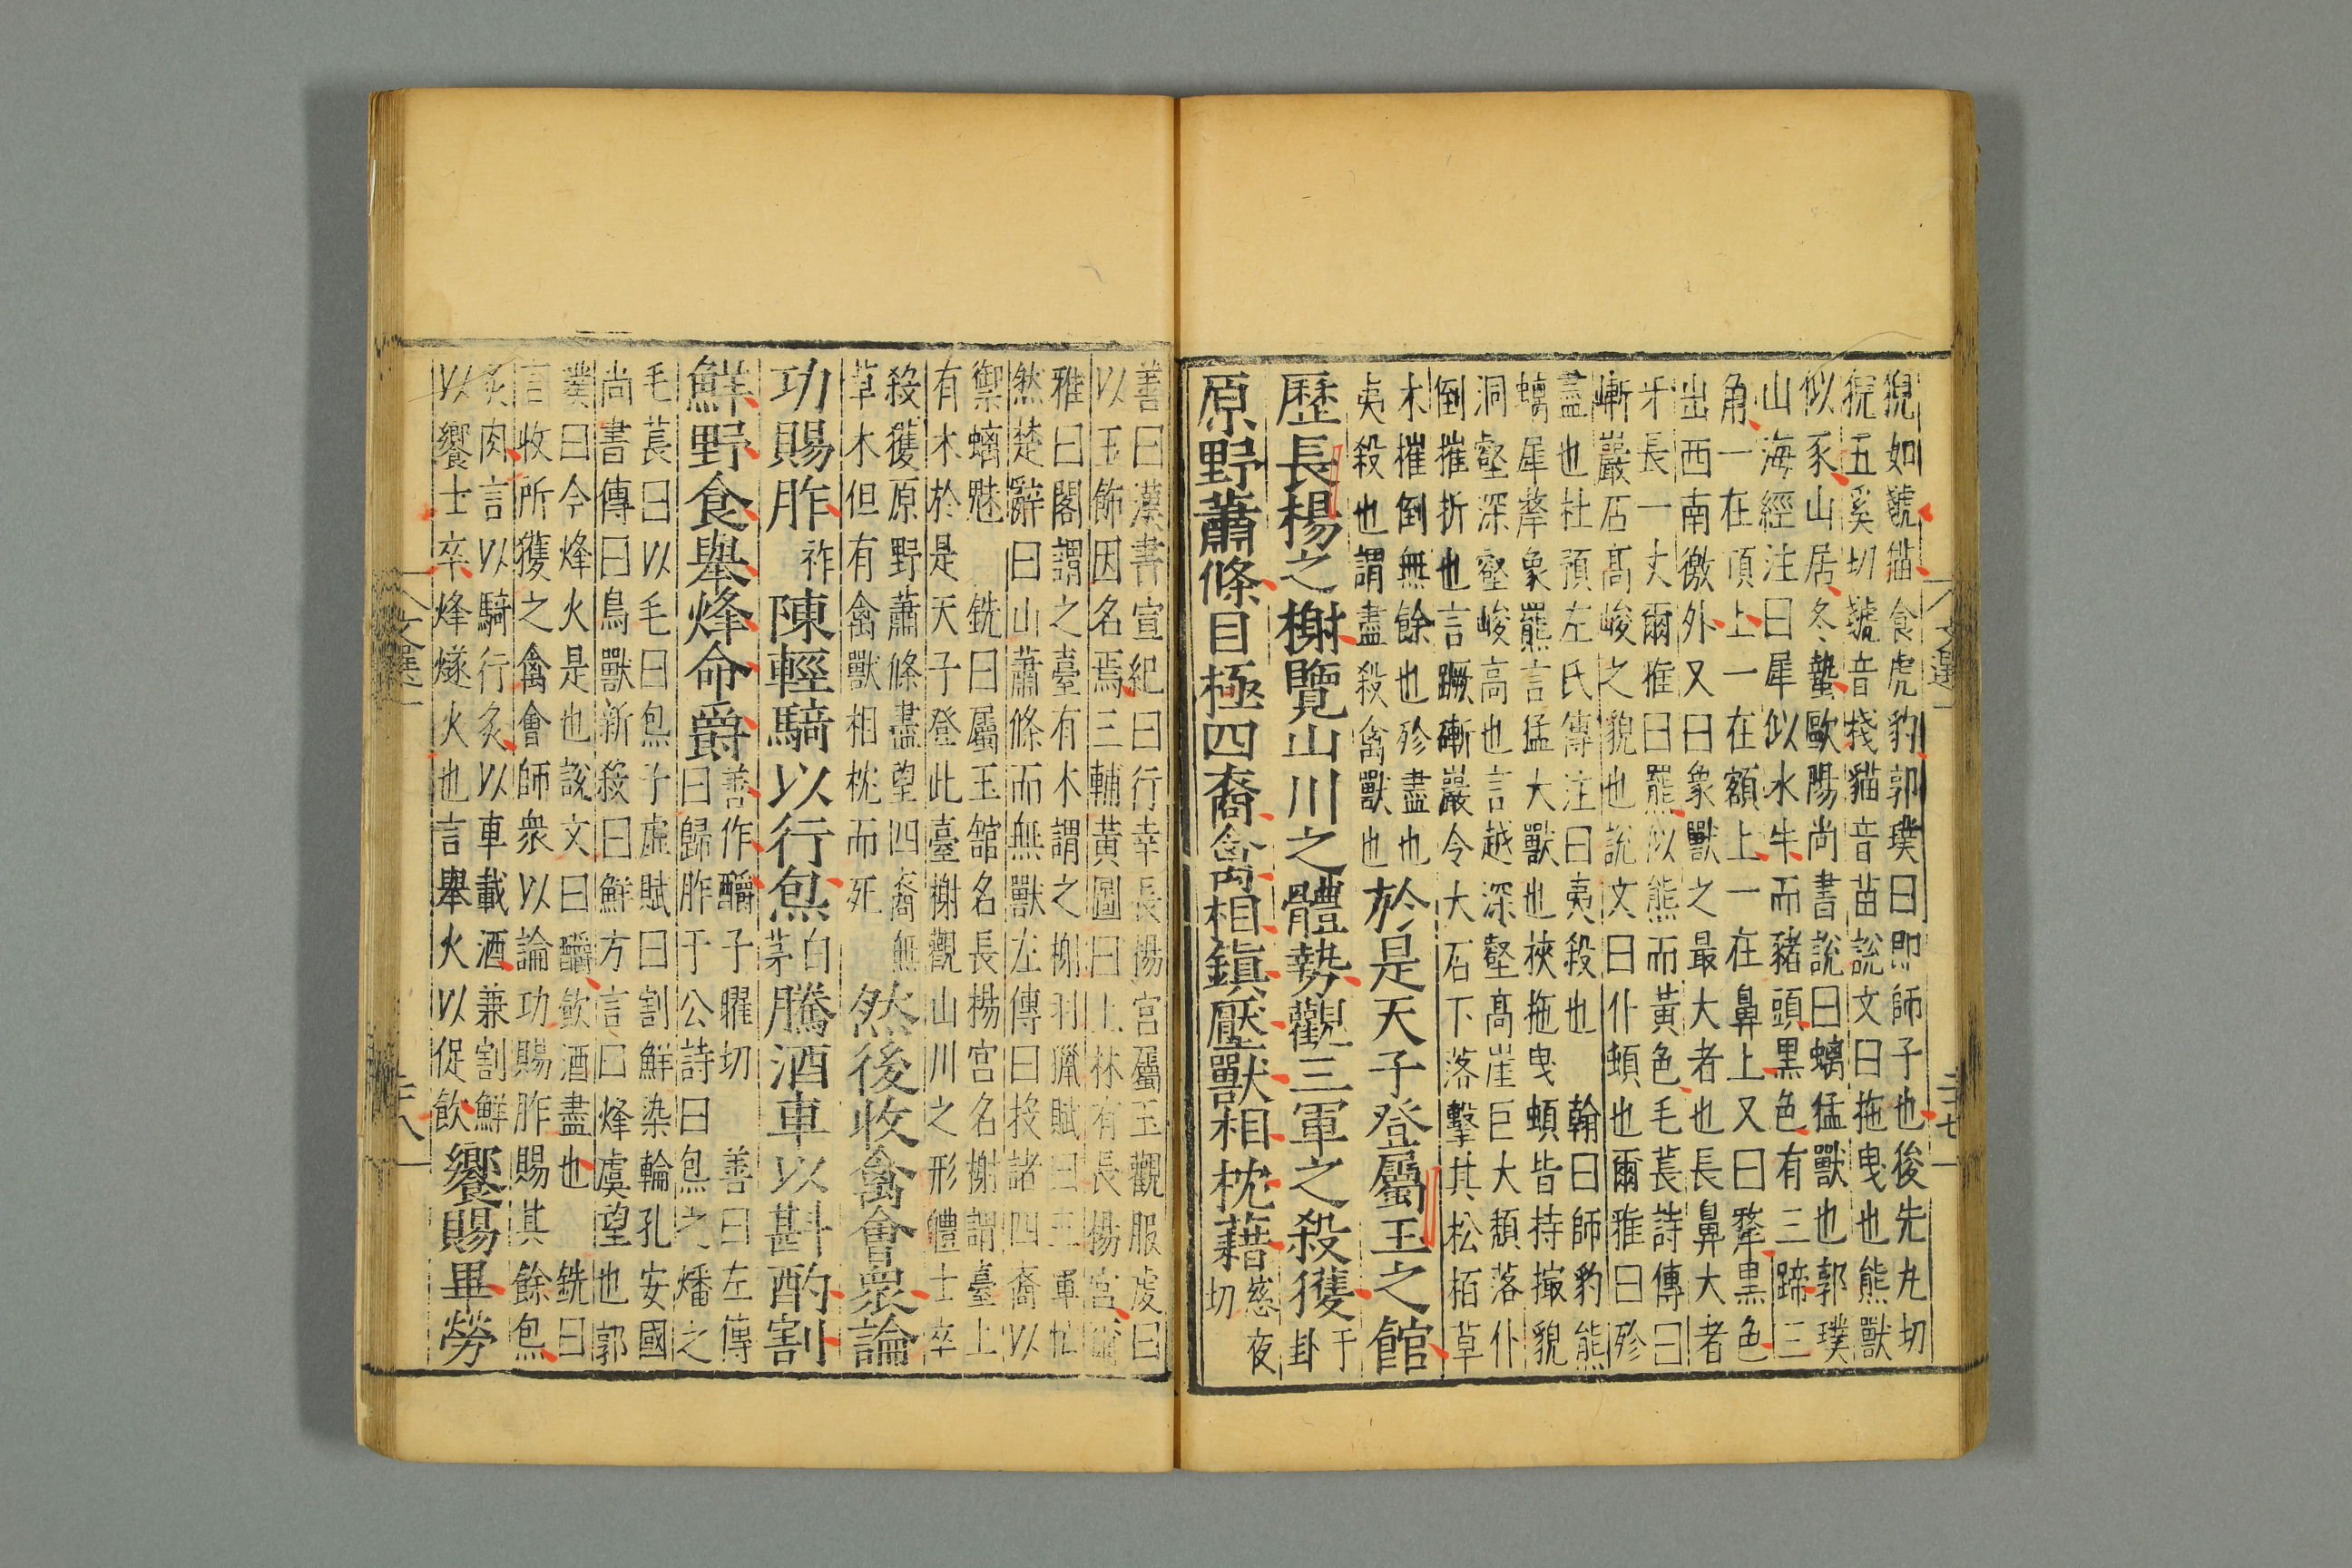 猊如虦猫食虎豹郭璞曰即師子也後先九切
猊五奚切虦音棧貓音苗說文曰拖曳也熊獸
似豕山居冬蟄歐陽尚書說曰螭猛獸也郭璞
山海經注曰犀似水牛而豬頭黑色有三蹄三
角一在頂上一在額上一在鼻上又曰犛黒色
出西南徼外又曰象獸之最大者也長鼻大者
牙長一丈爾雅曰羆似熊而黃色毛萇詩傳曰
嶃巖石髙峻之貌也說文曰仆頓也爾雅曰殄
盡也杜預左氏傳注曰夷殺也 翰曰師豹熊
螭犀犛象羆言猛大獸也挾拖曳頓皆持撮貌
洞壑深壑峻高也言越深壑髙崖巨大頹落仆
倒摧折也言蹶嶃巖令大石下落擊其松栢草
木摧倒無餘也殄盡也
夷殺也謂盡殺禽獸也
於是天子登屬玉之館
歷長楊之榭覽山川之體勢觀三軍之殺獲于
卦
原野蕭條目極四裔禽相鎮壓獸相枕藉慈夜
切
文選一
二十七
善曰漢書宣紀曰行幸長楊宮屬玉觀服虔曰
以玉飾因名焉三輔黃圖曰上林有長楊宮
雅曰闍謂之臺有木謂之榭羽獵賦曰三軍忙
然楚辭曰山蕭條而無獸左傳曰投諸四裔以
禦螭魅 銑曰屬玉舘名長楊宮名榭謂臺上
有木於是天子登此臺榭觀山川之形體士卒
殺獲原野蕭條盡望四裔無
草木但有禽獸相枕而死
然後收禽會衆論
功賜胙祚陳輕騎以行炰白
茅騰酒車以斟酌割
鮮野食舉烽命爵善作釂子曜切 善曰左傳
曰歸胙于公詩曰炰之燔之
毛萇曰以毛曰炰子虛賦曰割鮮染輪孔安國
尚書傳曰鳥獸新殺曰鮮方言曰烽虞望也郭
璞曰今烽火是也說文曰釂飲酒盡也 銑曰
言收所獲之禽會師衆以論功賜胙賜其餘炰
炙肉言以騎行炙以車載酒兼割鮮
以饗士卒烽燧火也言舉火以促飲
饗賜畢勞
文選一
二十八